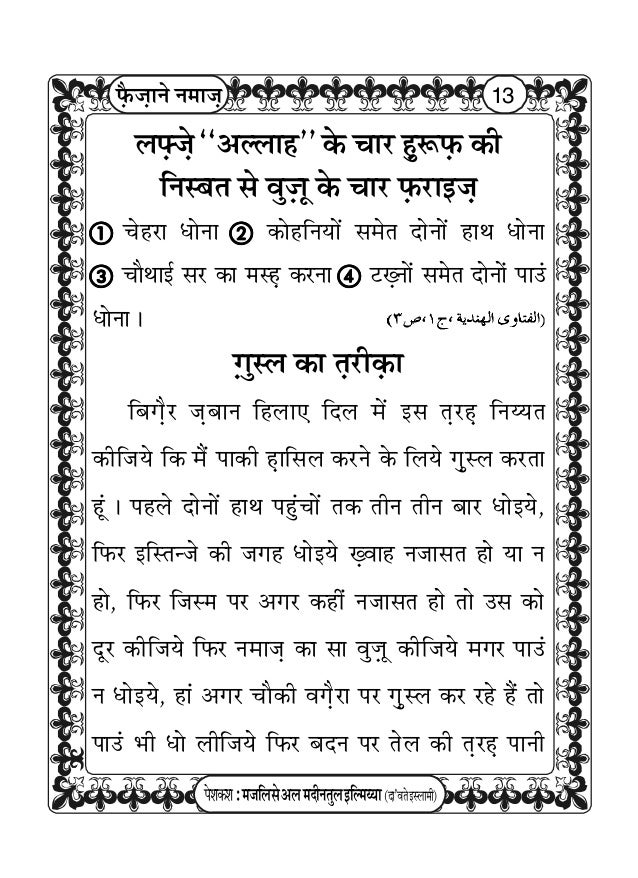 फ़ैज़ाने नमाज़
13
लफ़्ज़े “अल्लाह” के चार हुरूफ़ की
निस्बत से वुज़ू के चार फ़राइज़
① चेहरा धोना ② कोहनियों समेत दोनों हाथ धोना
③ चौथाई सर का मस्ह़ करना ④ टख़्नों समेत दोनों पाउं
धोना । (الفتاوى الهندية ،ج١،ص٣)
ग़ुस्ल का त़रीक़ा
बिग़ैर ज़बान हिलाए दिल में इस त़रह़ निय्यत
कीजिये कि मैं पाकी ह़ासिल करने के लिये ग़ुस्ल करता
हूं । पहले दोनों हाथ पहुंचों तक तीन तीन बार धोइये,
फिर इस्तिन्जे की जगह धोइये ख़्वाह नजासत हो या न
हो, फिर जिस्म पर अगर कहीं नजासत हो तो उस को
दूर कीजिये फिर नमाज़ का सा वुज़ू कीजिये मगर पाउं
न धोइये, हां अगर चौकी वग़ैरा पर ग़ुस्ल कर रहे हैं तो
पाउं भी धो लीजिये फिर बदन पर तेल की त़रह़ पानी
पेशकश : मजलिसे अल मदीनतुल इल्मिय्या (दा'वते इस्लामी)